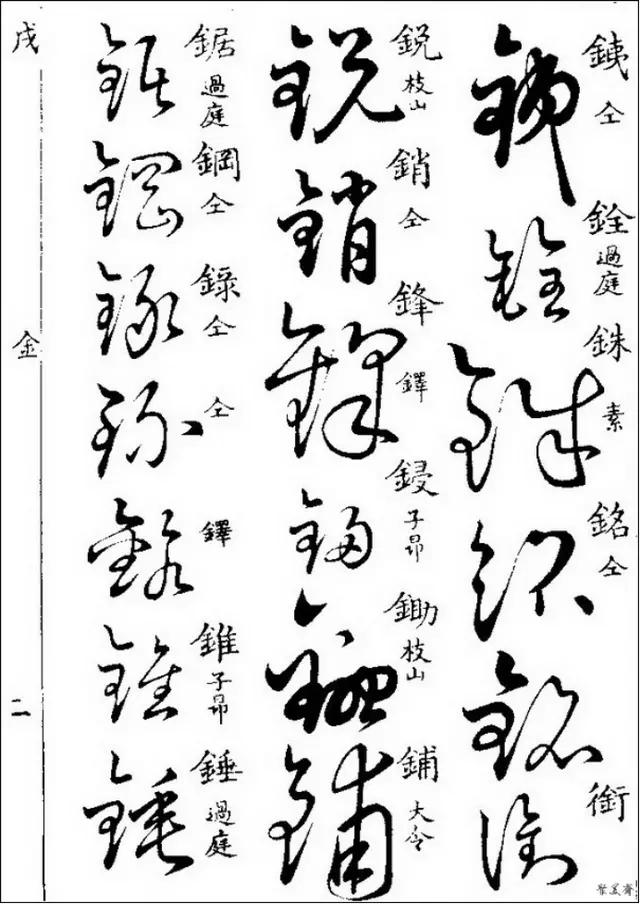 銕 仝
銓 過庭
銖 素
銘 仝
銜
鋭 枝山
銷 仝
鋒 鐸
鋟 子昂
鋤 枝山
鋪 大令
鋸 過庭
鋼 仝
錄 仝
仝
鐸
錐 子昂
錘 過庭
戌
金
二